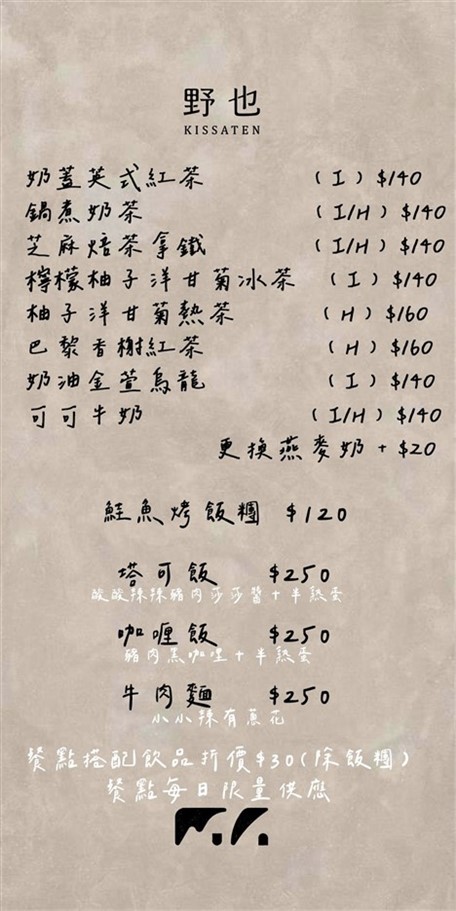 野也
KISSATEN
奶蓋英式紅茶 (I) $140
鍋煮奶茶 (I/H) $140
芝麻焙茶拿鐵 (I/H) $140
檸檬柚子洋甘菊冰茶 (I) $140
柚子洋甘菊熱茶 (H) $160
巴黎香榭紅茶 (H) $160
奶油金萱烏龍 (I) $140
可可牛奶 (I/H) $140
更換燕麥奶+$20
鮭魚烤飯糰 $120
塔可飯 $250
酸酸辣辣豬肉莎莎醬+半熟蛋
咖喱飯 $250
豬肉黑咖哩+半熟蛋
牛肉麵 $250
小小辣有蔥花
餐點搭配飲品折價$30(除飯糰)
餐點每日限量供應